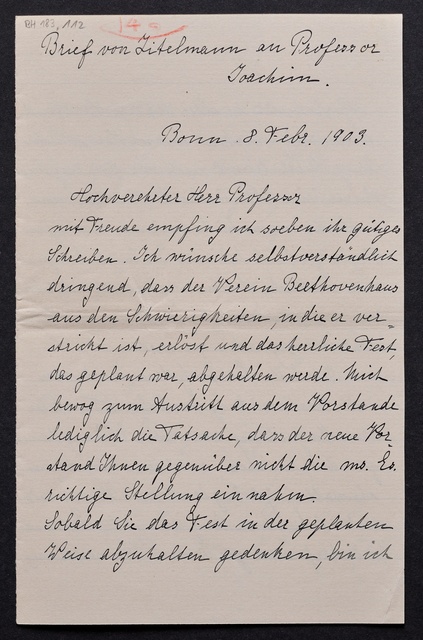 BH 183, 112
140
Brief von Zitelmann an Professor
Joachim.
Bonn. 8. Febr. 1903.
Hochverehrter Herr Professor
mit Freude empfing ich soeben ihr gütiges
Schreiben. Ich wünsche selbstverständlich
dringend, dass der Verein Beethovenhaus
aus den Schwierigkeiten, in die er ver=
strickt ist, erlöst und das herrliche Fest,
das geplant war, abgehalten werde. Mich
bewog zum Austritt aus dem Vorstande
lediglich die Tatsache, dass der neue Vor
stand Ihnen gegenüber nicht die ms. Es.
richtige Stellung einnahm.
Sobald Sie das Fest in der geplanten
Weise abzuhalten gedenken, bin ich